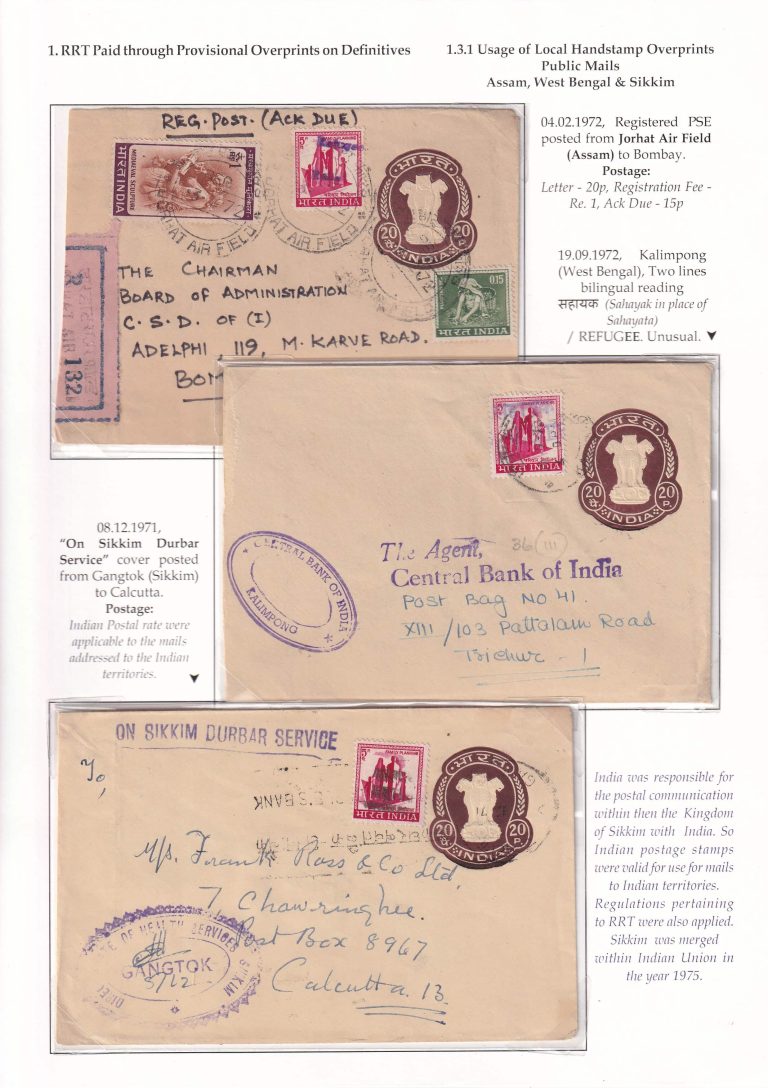 1. RRT Paid through Provisional Overprints on Definitives
1.3.1 Usage of Local Handstamp Overprints
Public Mails
Assam, West Bengal & Sikkim
REG. POST. (ACK DUE)
भारत INDIA
MEDIAEVAL SCULPTURE
FAMILY PLANNING
भारत INDIA
JORHAT AIR FIELD
JORHAT AIR FIELD
भारत
20
20 P.
INDIA
0.15
भारत INDIA
R
132
THE CHAIRMAN
BOARD OF ADMINISTRATION
C. S. D. OF (I)
ADELPHI, 119, M. KARVE ROAD.
04.02.1972, Registered PSE
posted from Jorhat Air Field
(Assam) to Bombay.
Postage:
Letter - 20p, Registration Fee -
Re. 1, Ack Due - 15p
19.09.1972, Kalimpong
(West Bengal), Two lines
bilingual reading
सहायक (Sahayak in place of
Sahayata)
/ REFUGEE. Unusual.
भारत INDIA
भारत
20
20 P.
INDIA
CENTRAL BANK OF INDIA
KALIMPONG
36 (III)
The Agent,
Central Bank of India
Post Bag No 41.
XIII/103 Pattalam Road
Trichur - 1
08.12.1971,
"On Sikkim Durbar
Service" cover posted
from Gangtok (Sikkim)
to Calcutta.
Postage:
Indian Postal rate were
applicable to the mails
addressed to the Indian
territories.
ON SIKKIM DURBAR SERVICE
FAMILY PLANNING
भारत INDIA
BANK
भारत
20
20 P.
INDIA
To,
M/s. Frank Ross & Co Ltd,
7 Chowringhee.
Post Box 8967
Calcutta 13
OF HEALTH SERVICES SIKKIM
GANGTOK
India was responsible for
the postal communication
within then the Kingdom
of Sikkim with India. So
Indian postage stamps
were valid for use for mails
to Indian territories.
Regulations pertaining
to RRT were also applied.
Sikkim was merged
within Indian Union in
the year 1975.